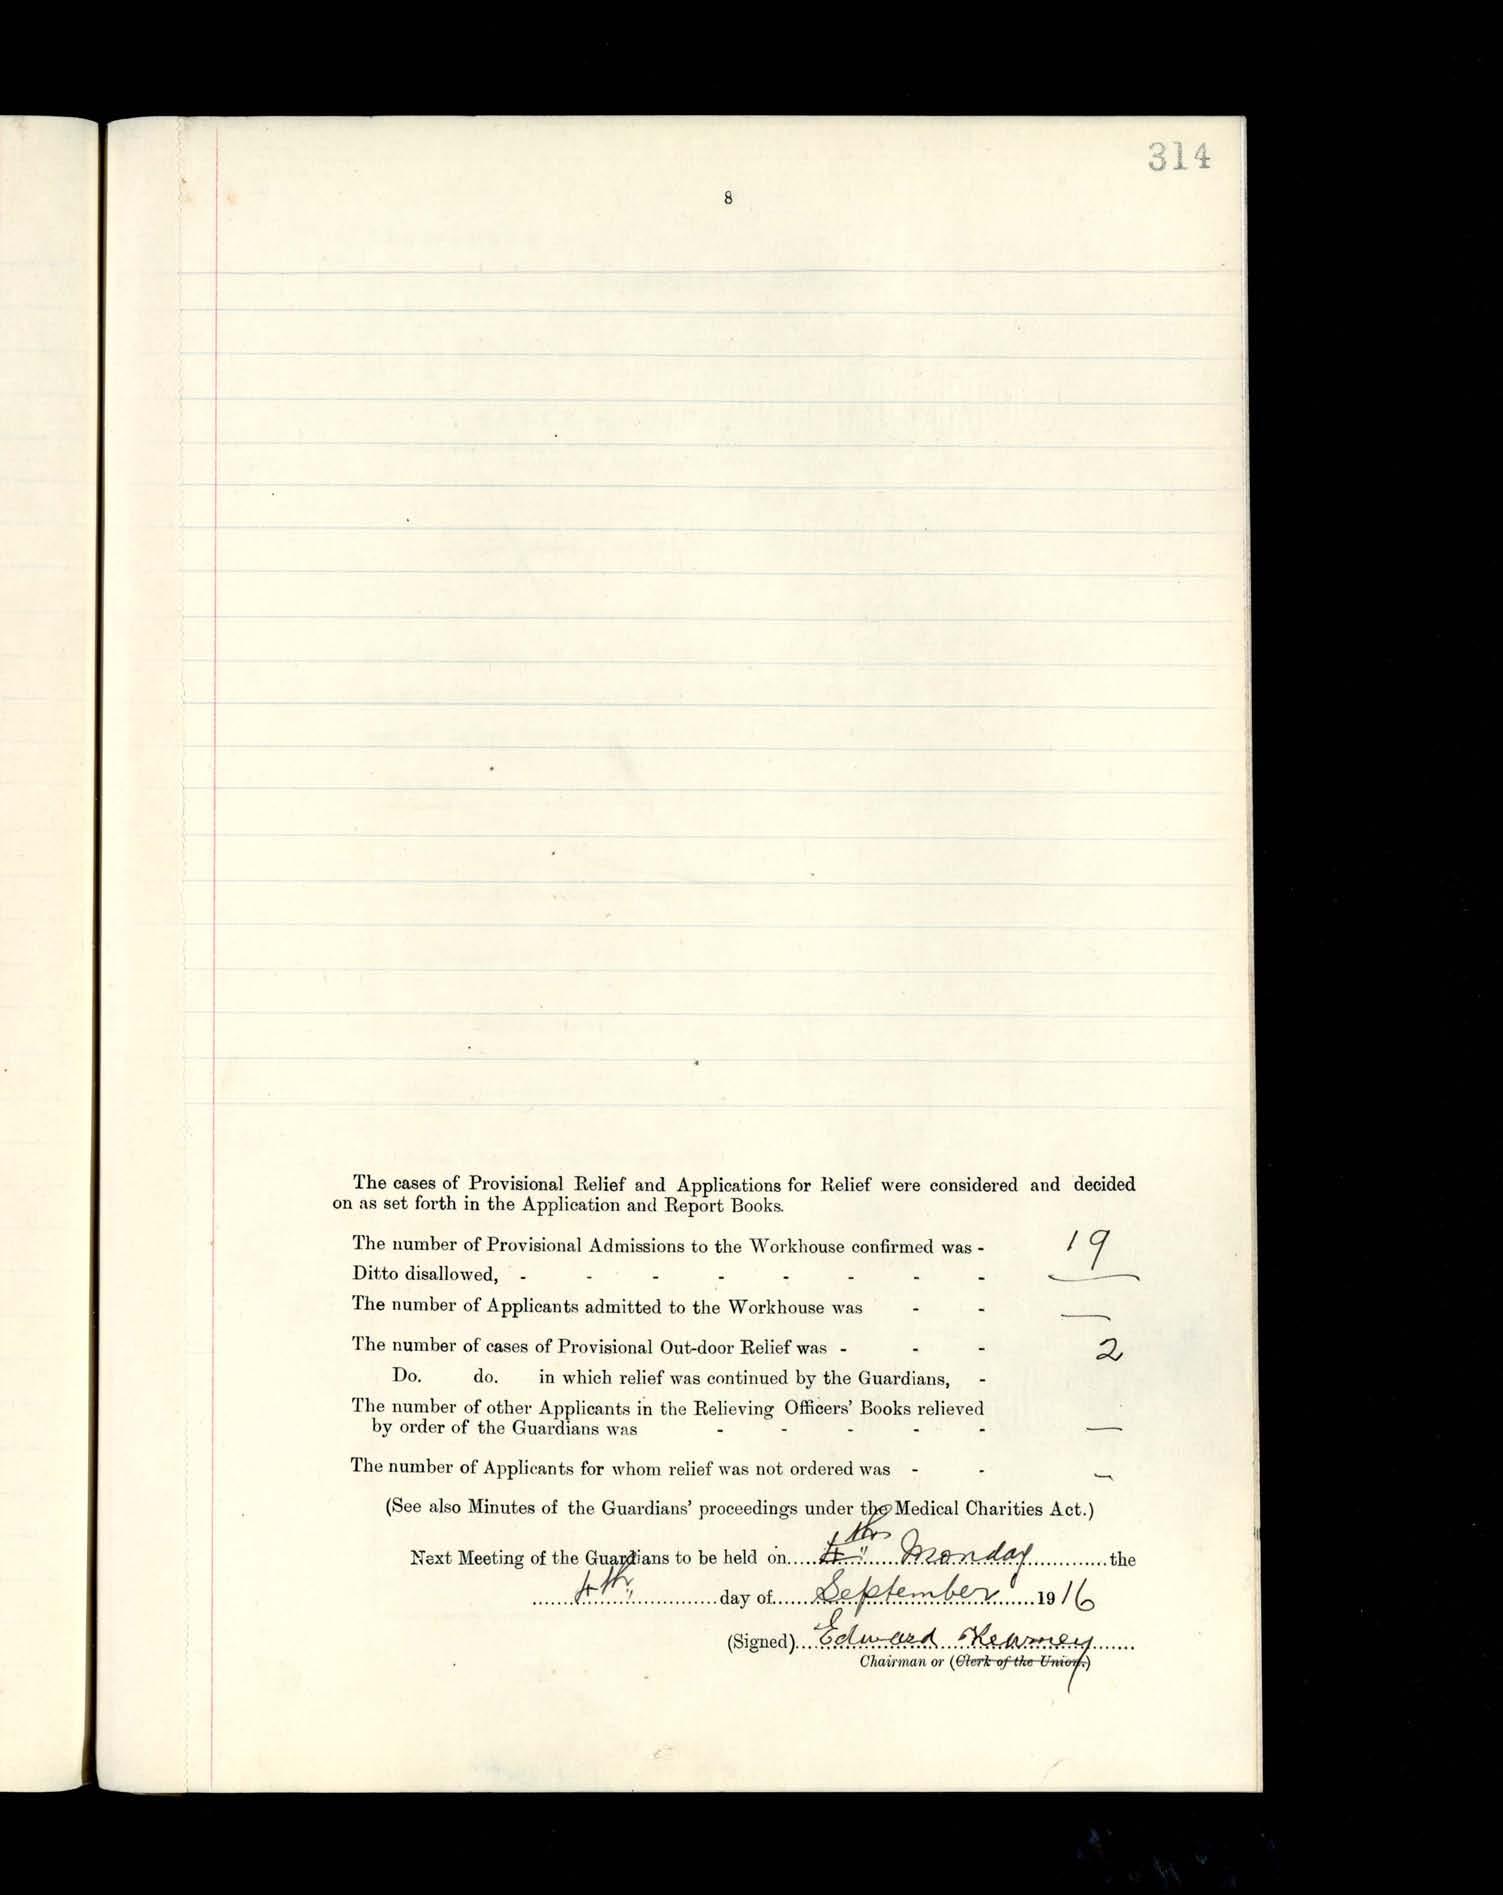 314
8
The cases of Provisional Relief and Applications for Relief were considered and decided
on as set forth in the Application and Report Books.
The number of Provisional Admissions to the Workhouse confirmed was - 19
Ditto disallowed, - - - - - - - - —
The number of Applicants admitted to the Workhouse was - - —
The number of cases of Provisional Out-door Relief was - - - 2
Do. do. in which relief was continued by the Guardians, -
The number of other Applicants in the Relieving Officers' Books relieved
by order of the Guardians was - - - - - —
The number of Applicants for whom relief was not ordered was - - —
(See also Minutes of the Guardians' proceedings under the Medical Charities Act.)
Next Meeting of the Guardians to be held on Monday the
4th day of September 1916
(Signed) Edward Kearney
Chairman or (Clerk of the Union.)